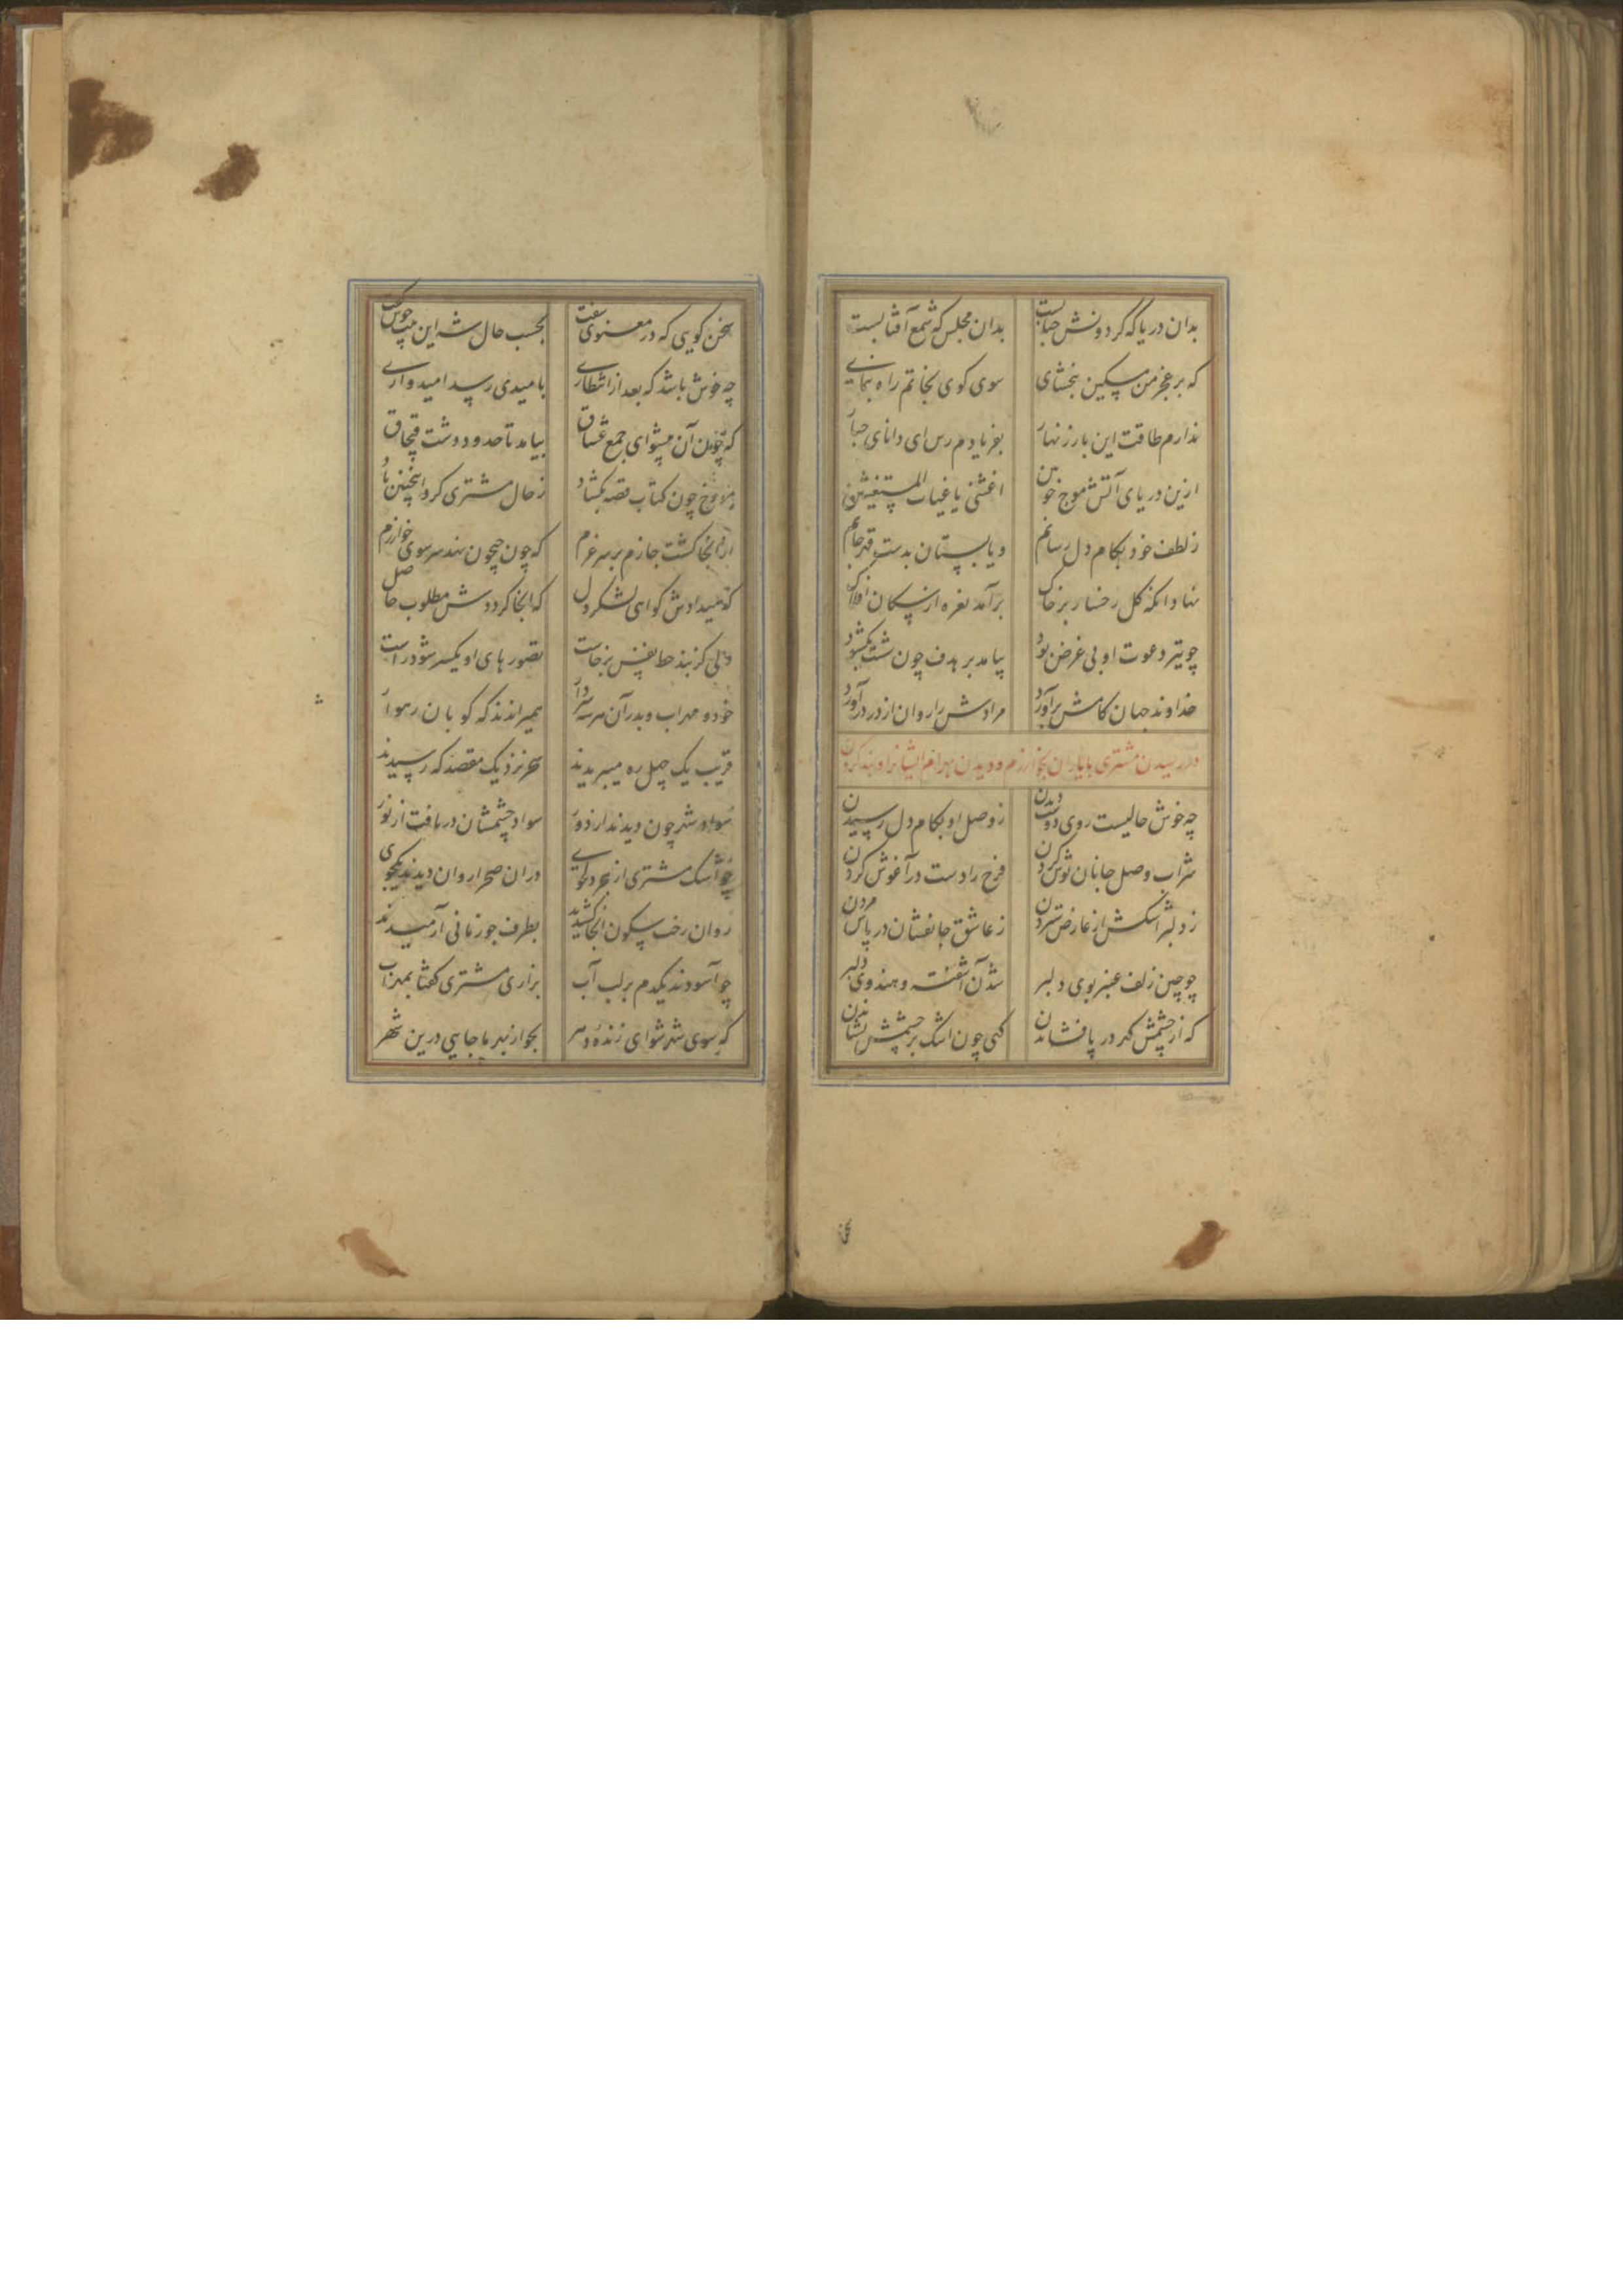 بدان دریا که گردونش حبابست بدان مجلس که شمع آفتابست
که بر عجز من مسکین ببخشای سوی کوی نجاتم راه بنمای
ندارم طاقت این بار زنهار بفریادم رس ای دانای جبار
ازین دریای آتش موج خونین اغثنی یا غیاث المستغیثین
ز لطف خود بکام دل رسانم و یا بستان بدست قهر جانم
نهاد آنگه گل رخسار بر خاک برآمد نعره از سکان افلاک
چو تیر دعوت او بی غرض بود بیامد بر هدف چون شست بگشود
خداوند جهان کامش برآورد مرادش را روان از در درآورد
در رسیدن مشتری با یاران بخوارزم و دیدن بهرام ایشانرا و بند کردن
چه خوش حالیست روی دوست دیدن ز وصل او بکام دل رسیدن
شراب وصل جانان نوش کردن فرح را دست در آغوش کردن
ز دلبر اشکش از عارض ستردن ز عاشق جانفشان در پاش مردن
چو چین زلف عنبر بوی دلبر شدن آشفته و هندوی دلبر
که از چشمش گهر در پا فشاندن گهی چون اشک بر چشمش نشاندن
سخن گویی که در معنوی سفت بحسب حال شه این بیت خوش گفت
چه خوش باشد که بعد از انتظاری بامیدی رسد امیدواری
که چون آن پیشوای جمع عشاق بیامد تا حدود دشت قبچاق
مورخ چون کتاب قصه بگشاد ز حال مشتری کرد اینچنین یاد
از آنجا گشت جازم بر سر عزم که چون جیحون نهد سر سوی خوارزم
که میدادش گواهی لشکر دل که آنجا گرددش مطلوب حاصل
تصورهای او یکسر شود راست
خود و مهراب و بدر آن هر سه همیراندند که کوبان رهوار
قریب یک چهل ره میبریدند بنزدیک مقصد که رسیدند
سواد شهر چون دیدند از دور سواد چشمشان دریافت از نور
چو اشک مشتری از هر دران صحرا روان دیدند یکجوی
روان رخت سکون آنجا کشیدند بطرف جو زمانی آرمیدند
چو آسودند یکدم بر لب آب بزاری مشتری گفتا بمهراب
که سوی شهر شو ای زنده دهر بجو از بهر ما جایی درین شهر